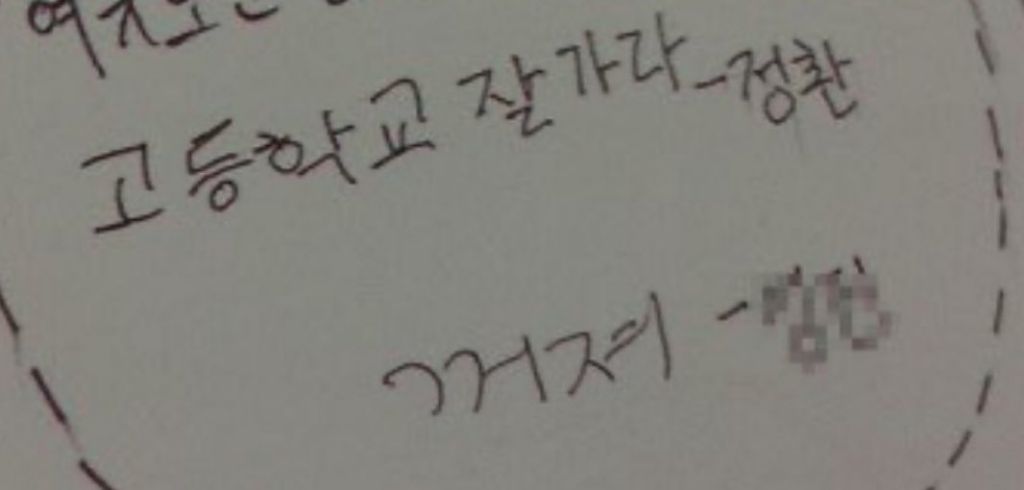 고등학교 잘가라 -정환
꺼져